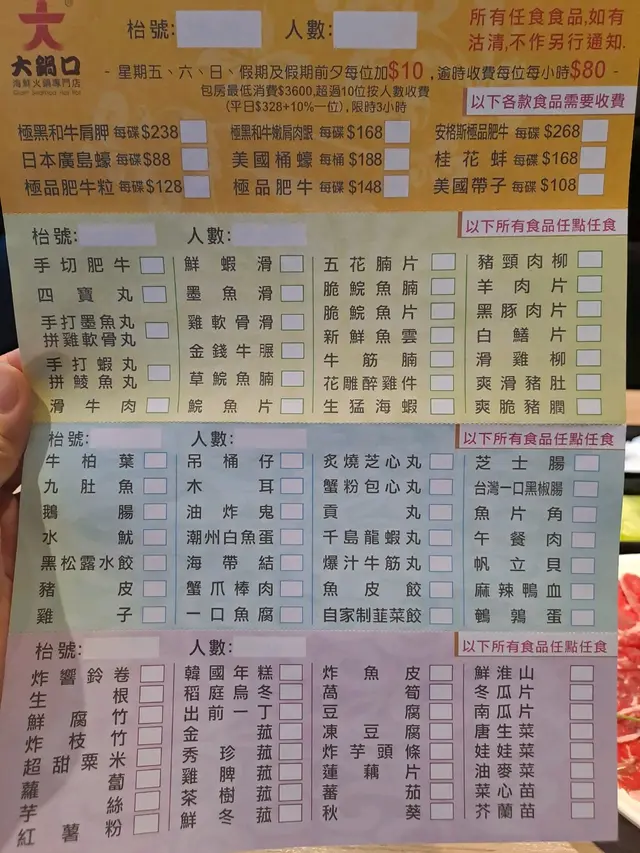 大
大鍋口
海鮮火鍋專門店
枱號: 人數:
所有任食食品,如有
沽清,不作另行通知.
- 星期五、六、日、假期及假期前夕每位加$10 ,逾時收費每位每小時$80 -
包房最低消費$3600,超過10位按人數收費
(平日$328+10%一位),限時3小時
以下各款食品需要收費
極黑和牛肩胛 每碟$238 極黑和牛嫩肩肉眼 每碟$168 安格斯極品肥牛 每碟$268
日本廣島蠔 每碟$88 美國桶蠔 每桶$188 桂花蚌 每碟$168
極品肥牛粒 每碟$128 極品肥牛 每碟$148 美國帶子 每碟$108
枱號: 人數: 以下所有食品任點任食
手切肥牛 鮮蝦滑 五花腩片 豬頸肉柳
四寶丸 墨魚滑 脆鯇魚腩 羊肉片
手打墨魚丸拼雞軟骨丸 雞軟骨滑 脆鯇魚片 黑豚肉片
金錢牛𦟌 新鮮魚雲 白鱔片
手打蝦丸拼鯪魚丸 草鯇魚腩 牛筋腩 滑雞柳
花雕醉雞件 爽滑豬肚
滑牛肉 鯇魚片 生猛海蝦 爽脆豬膶
枱號: 人數: 以下所有食品任點任食
牛柏葉 吊桶仔 炙燒芝心丸 芝士腸
九肚魚 木耳 蟹粉包心丸 台灣一口黑椒腸
鵝腸 油炸鬼 貢丸 魚片角
水魷 潮州白魚蛋 千島龍蝦丸 午餐肉
黑松露水餃 海帶結 爆汁牛筋丸 帆立貝
豬皮 蟹爪棒肉 魚皮餃 麻辣鴨血
雞子 一口魚腐 自家制韮菜餃 鵪鶉蛋
枱號: 人數: 以下所有食品任點任食
炸響鈴卷 韓國年糕 炸魚皮 鮮淮山
生根 稻庭烏冬 萵筍 冬瓜片
鮮腐竹 出前一丁 豆腐 南瓜片
炸枝竹 金菇 凍豆腐 唐生菜
超甜粟米 秀珍菇 炸芋頭條 娃娃菜
蘿蔔 雞脾菇 蓮藕片 油麥菜
芋絲 茶樹菇 蕃茄 菜心苗
紅薯粉 鮮冬菇 秋葵 芥蘭苗